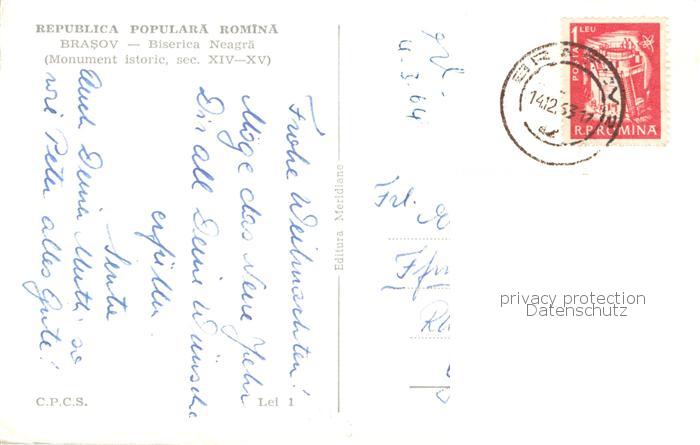 REPUBLICA POPULARĂ ROMÎNĂ
BRAȘOV — Biserica Neagră
(Monument istoric, sec. XIV—XV)
Frohe Weihnachten!
Möge das Neue Jahr
Dir all Deine Wünsche
erfüllen.
Auch Deiner Mutti so
wie Peter alles Gute!
C.P.C.S.
Lei 1
Editura Meridiane
4.3.64
1 LEU
R.P.ROMINA
14.12.63
Frl.
Ffm
privacy protection
Datenschutz